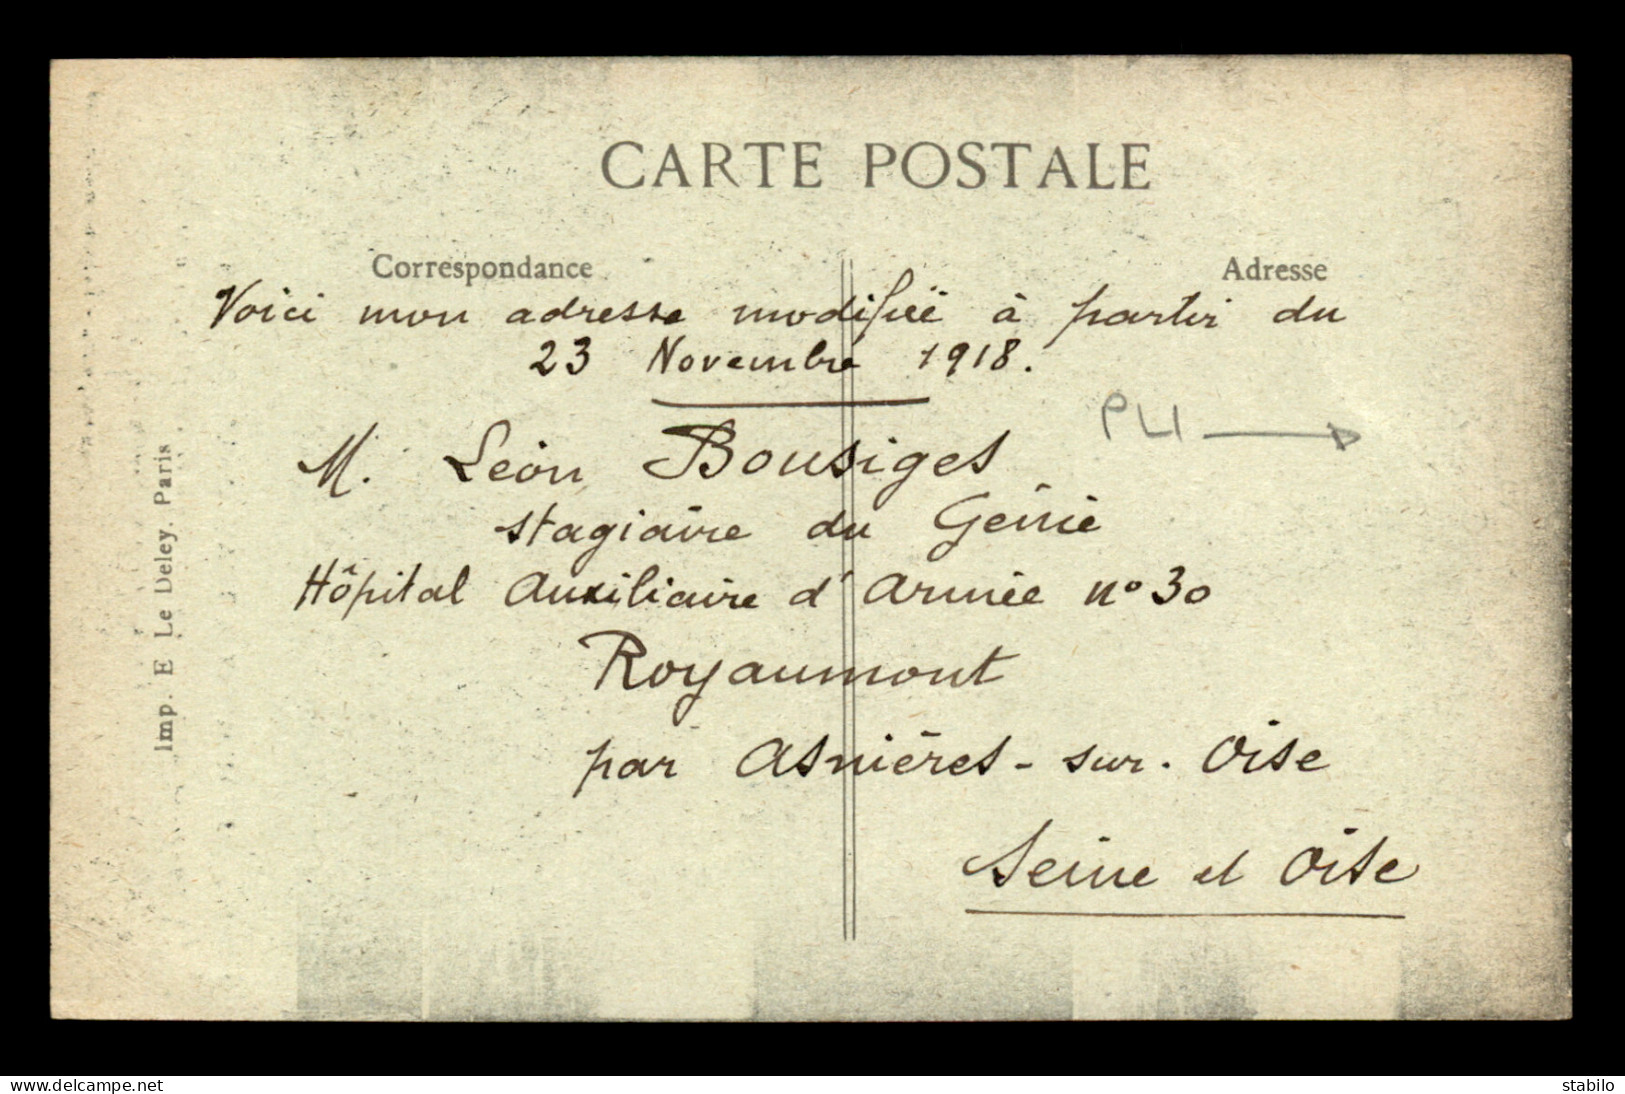 CARTE POSTALE
Correspondance
Adresse
Voici mon adresse modifiée à partir du
23 Novembre 1918.
PLI
M. Léon Bousiges
stagiaire du Génie
Hôpital Auxiliaire d'Armée n° 30
Royaumont
par Asnières-sur-Oise
Seine et Oise
Imp. E Le Deley. Paris
www.delcampe.net
stabilo